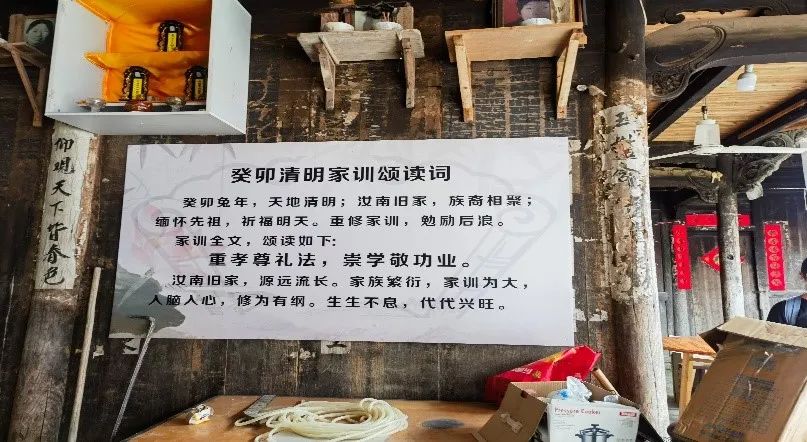 癸卯清明家训颂读词
癸卯兔年，天地清明；汝南旧家，族裔相聚；
缅怀先祖，祈福明天。重修家训，勉励后浪。
家训全文，颂读如下:
重孝尊礼法，崇学敬功业。
汝南旧家，源远流长。家族繁衍，家训为大，
入脑入心，修为有纲。生生不息，代代兴旺。
仰明天下皆春色
Pressure Cooker